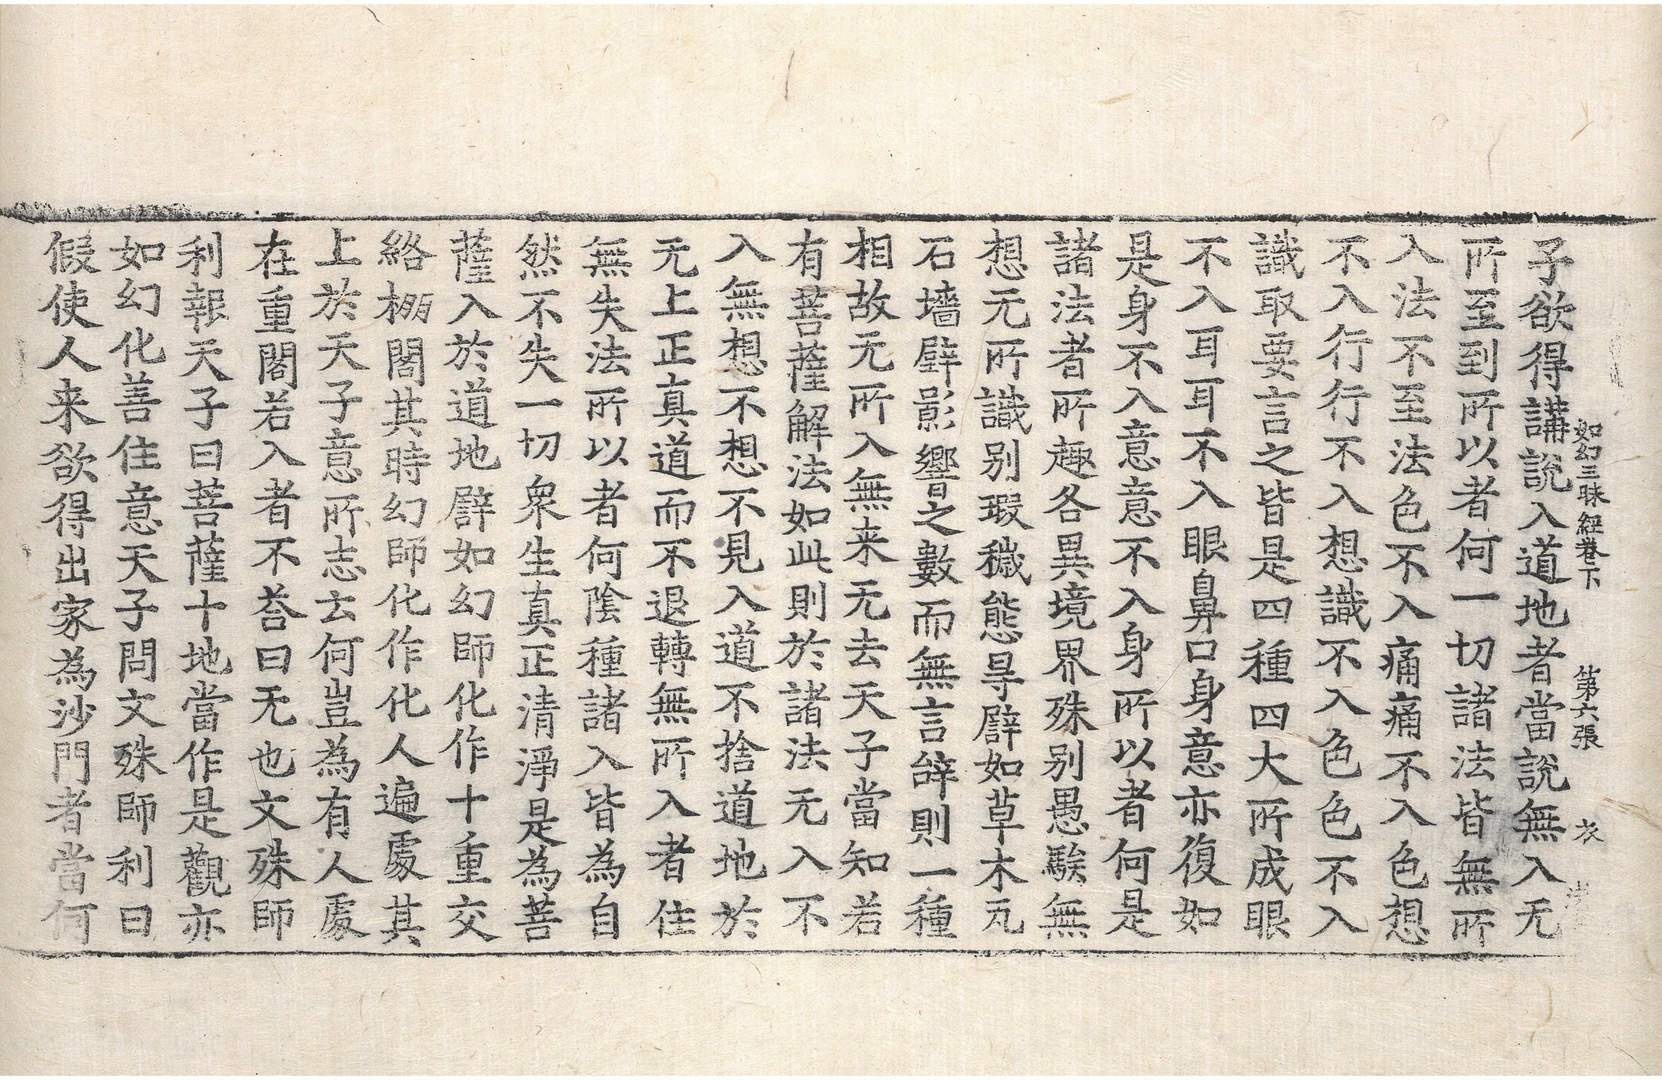 如幻三昧經卷下 第六張 衣
子欲得講說入道地者當說無入无
所至到所以者何一切諸法皆無所
入法不至法色不入痛痛不入色想
不入行行不入想識不入色色不入
識取要言之皆是四種四大所成眼
不入耳耳不入眼鼻口身意亦復如
是身不入意意不入身所以者何是
諸法者所趣各異境界殊别愚騃無
想无所識别瑕穢態㝵譬如草木瓦
石墻壁影響之數而無言辝則一種
相故无所入無来无去天子當知若
有菩薩解法如此則於諸法无入不
入無想不想不見入道不捨道地於
无上正真道而不退轉無所入者住
無失法所以者何陰種諸入皆為自
然不失一切衆生真正清淨是為菩
薩入於道地譬如幻師化作十重交
絡棚閣其時幻師化作化人遍處其
上於天子意所志云何豈為有人處
在重閣若入者不荅曰无也文殊師
利報天子曰菩薩十地當作是觀亦
如幻化善住意天子問文殊師利曰
假使人来欲得出家為沙門者當何